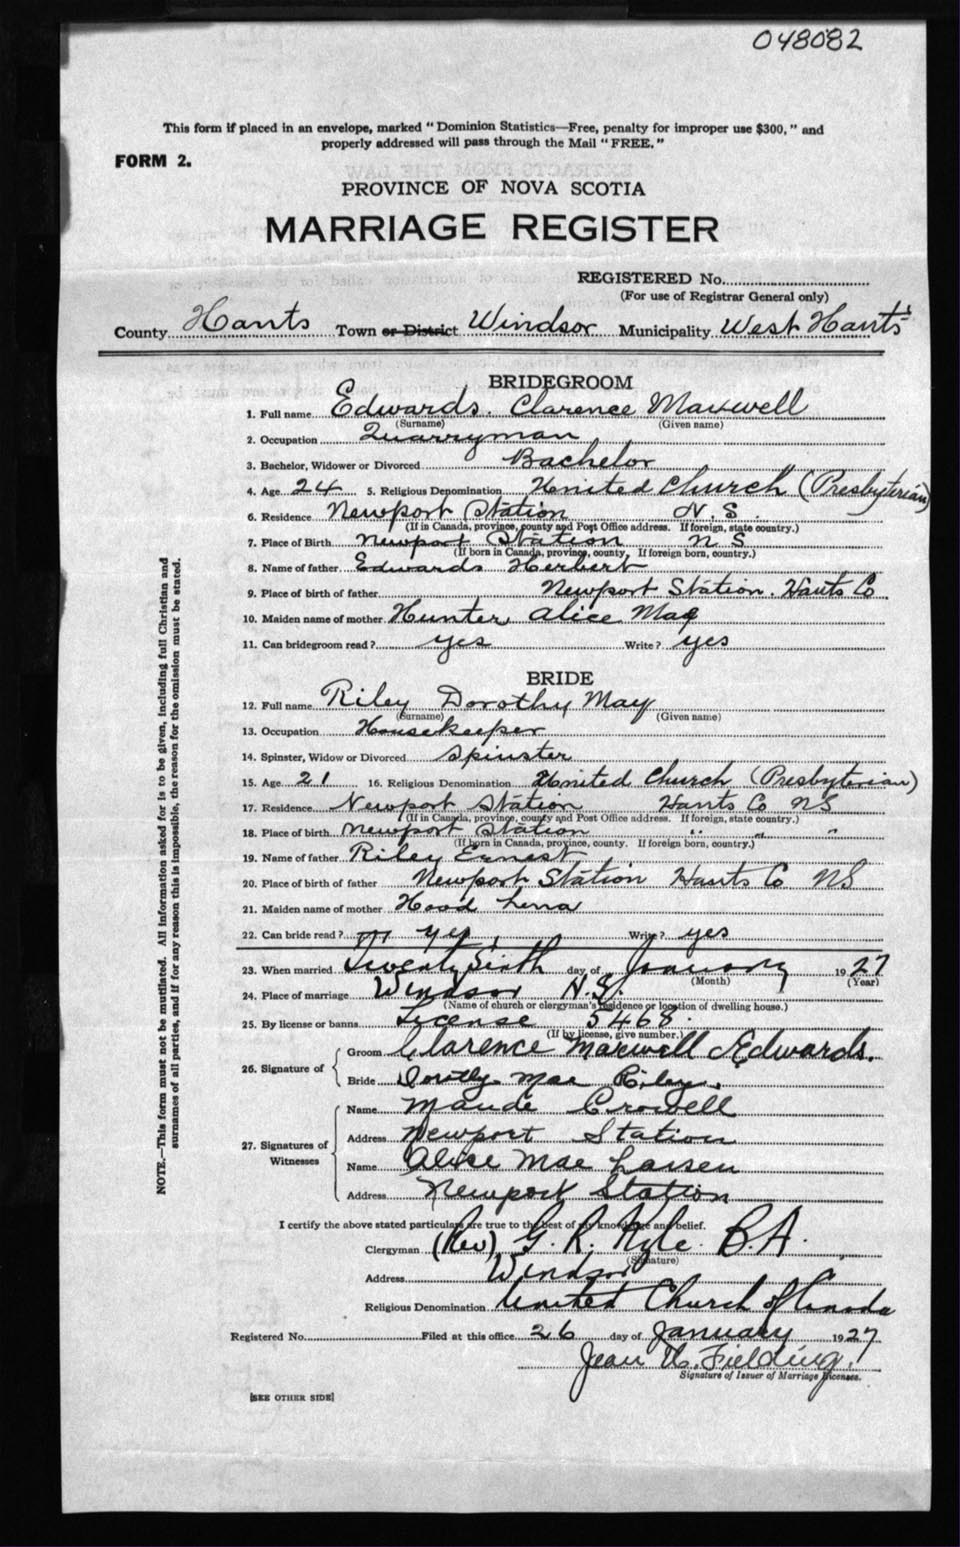 048082
This form if placed in an envelope, marked "Dominion Statistics—Free, penalty for improper use $300," and
properly addressed will pass through the Mail "FREE."
FORM 2.
PROVINCE OF NOVA SCOTIA
MARRIAGE REGISTER
REGISTERED No.
(For use of Registrar General only)
County Hants Town or District Windsor Municipality West Hants
BRIDEGROOM
1. Full name Edwards. Clarence Maxwell
(Surname) (Given name)
2. Occupation Quarryman
3. Bachelor, Widower or Divorced Bachelor
4. Age 24 5. Religious Denomination United Church (Presbyterian)
6. Residence Newport Station N.S.
(If in Canada, province, county and Post Office address. If foreign, state country.)
7. Place of Birth Newport Station N S
(If born in Canada, province, county, If foreign born, country.)
8. Name of father Edwards Herbert
9. Place of birth of father Newport Station. Hants Co
10. Maiden name of mother Hunter, Alice Mae
11. Can bridegroom read? yes Write? yes
BRIDE
12. Full name Riley Dorothy May
(Surname) (Given name)
13. Occupation Housekeeper
14. Spinster, Widow or Divorced Spinster
15. Age 21 16. Religious Denomination United Church (Presbyterian)
17. Residence Newport Station Hants Co NS
(If in Canada, province, county and Post Office address. If foreign, state country.)
18. Place of birth Newport Station " " "
(If born in Canada, province, county. If foreign born, country.)
19. Name of father Riley Ernest
20. Place of birth of father Newport Station Hants Co NS
21. Maiden name of mother Hood Lena
22. Can bride read? yes Write? yes
23. When married Twenty Sixth day of January 1927
(Month) (Year)
24. Place of marriage Windsor N.S.
(Name of church or clergyman's residence or location of dwelling house.)
25. By license or banns License 5468.
(If by license, give number.)
26. Signature of Groom Clarence Maxwell Edwards.
Bride Dorothy Mae Riley.
27. Signatures of Witnesses
Name Maude Crowell
Address Newport Station
Name Alice Mae Larsen
Address Newport Station
I certify the above stated particulars are true to the best of my knowledge and belief.
Clergyman (Rev) G. R. Kyle B.A.
(Signature)
Address Windsor
Religious Denomination United Church of Canada
Registered No. Filed at this office 26 day of January 1927
Jean Fielding.
Signature of Issuer of Marriage Licenses.
[SEE OTHER SIDE]
NOTE.—This form must not be mutilated. All information asked for is to be given, including full Christian and
surnames of all parties, and if for any reason this is impossible, the reason for the omission must be stated.